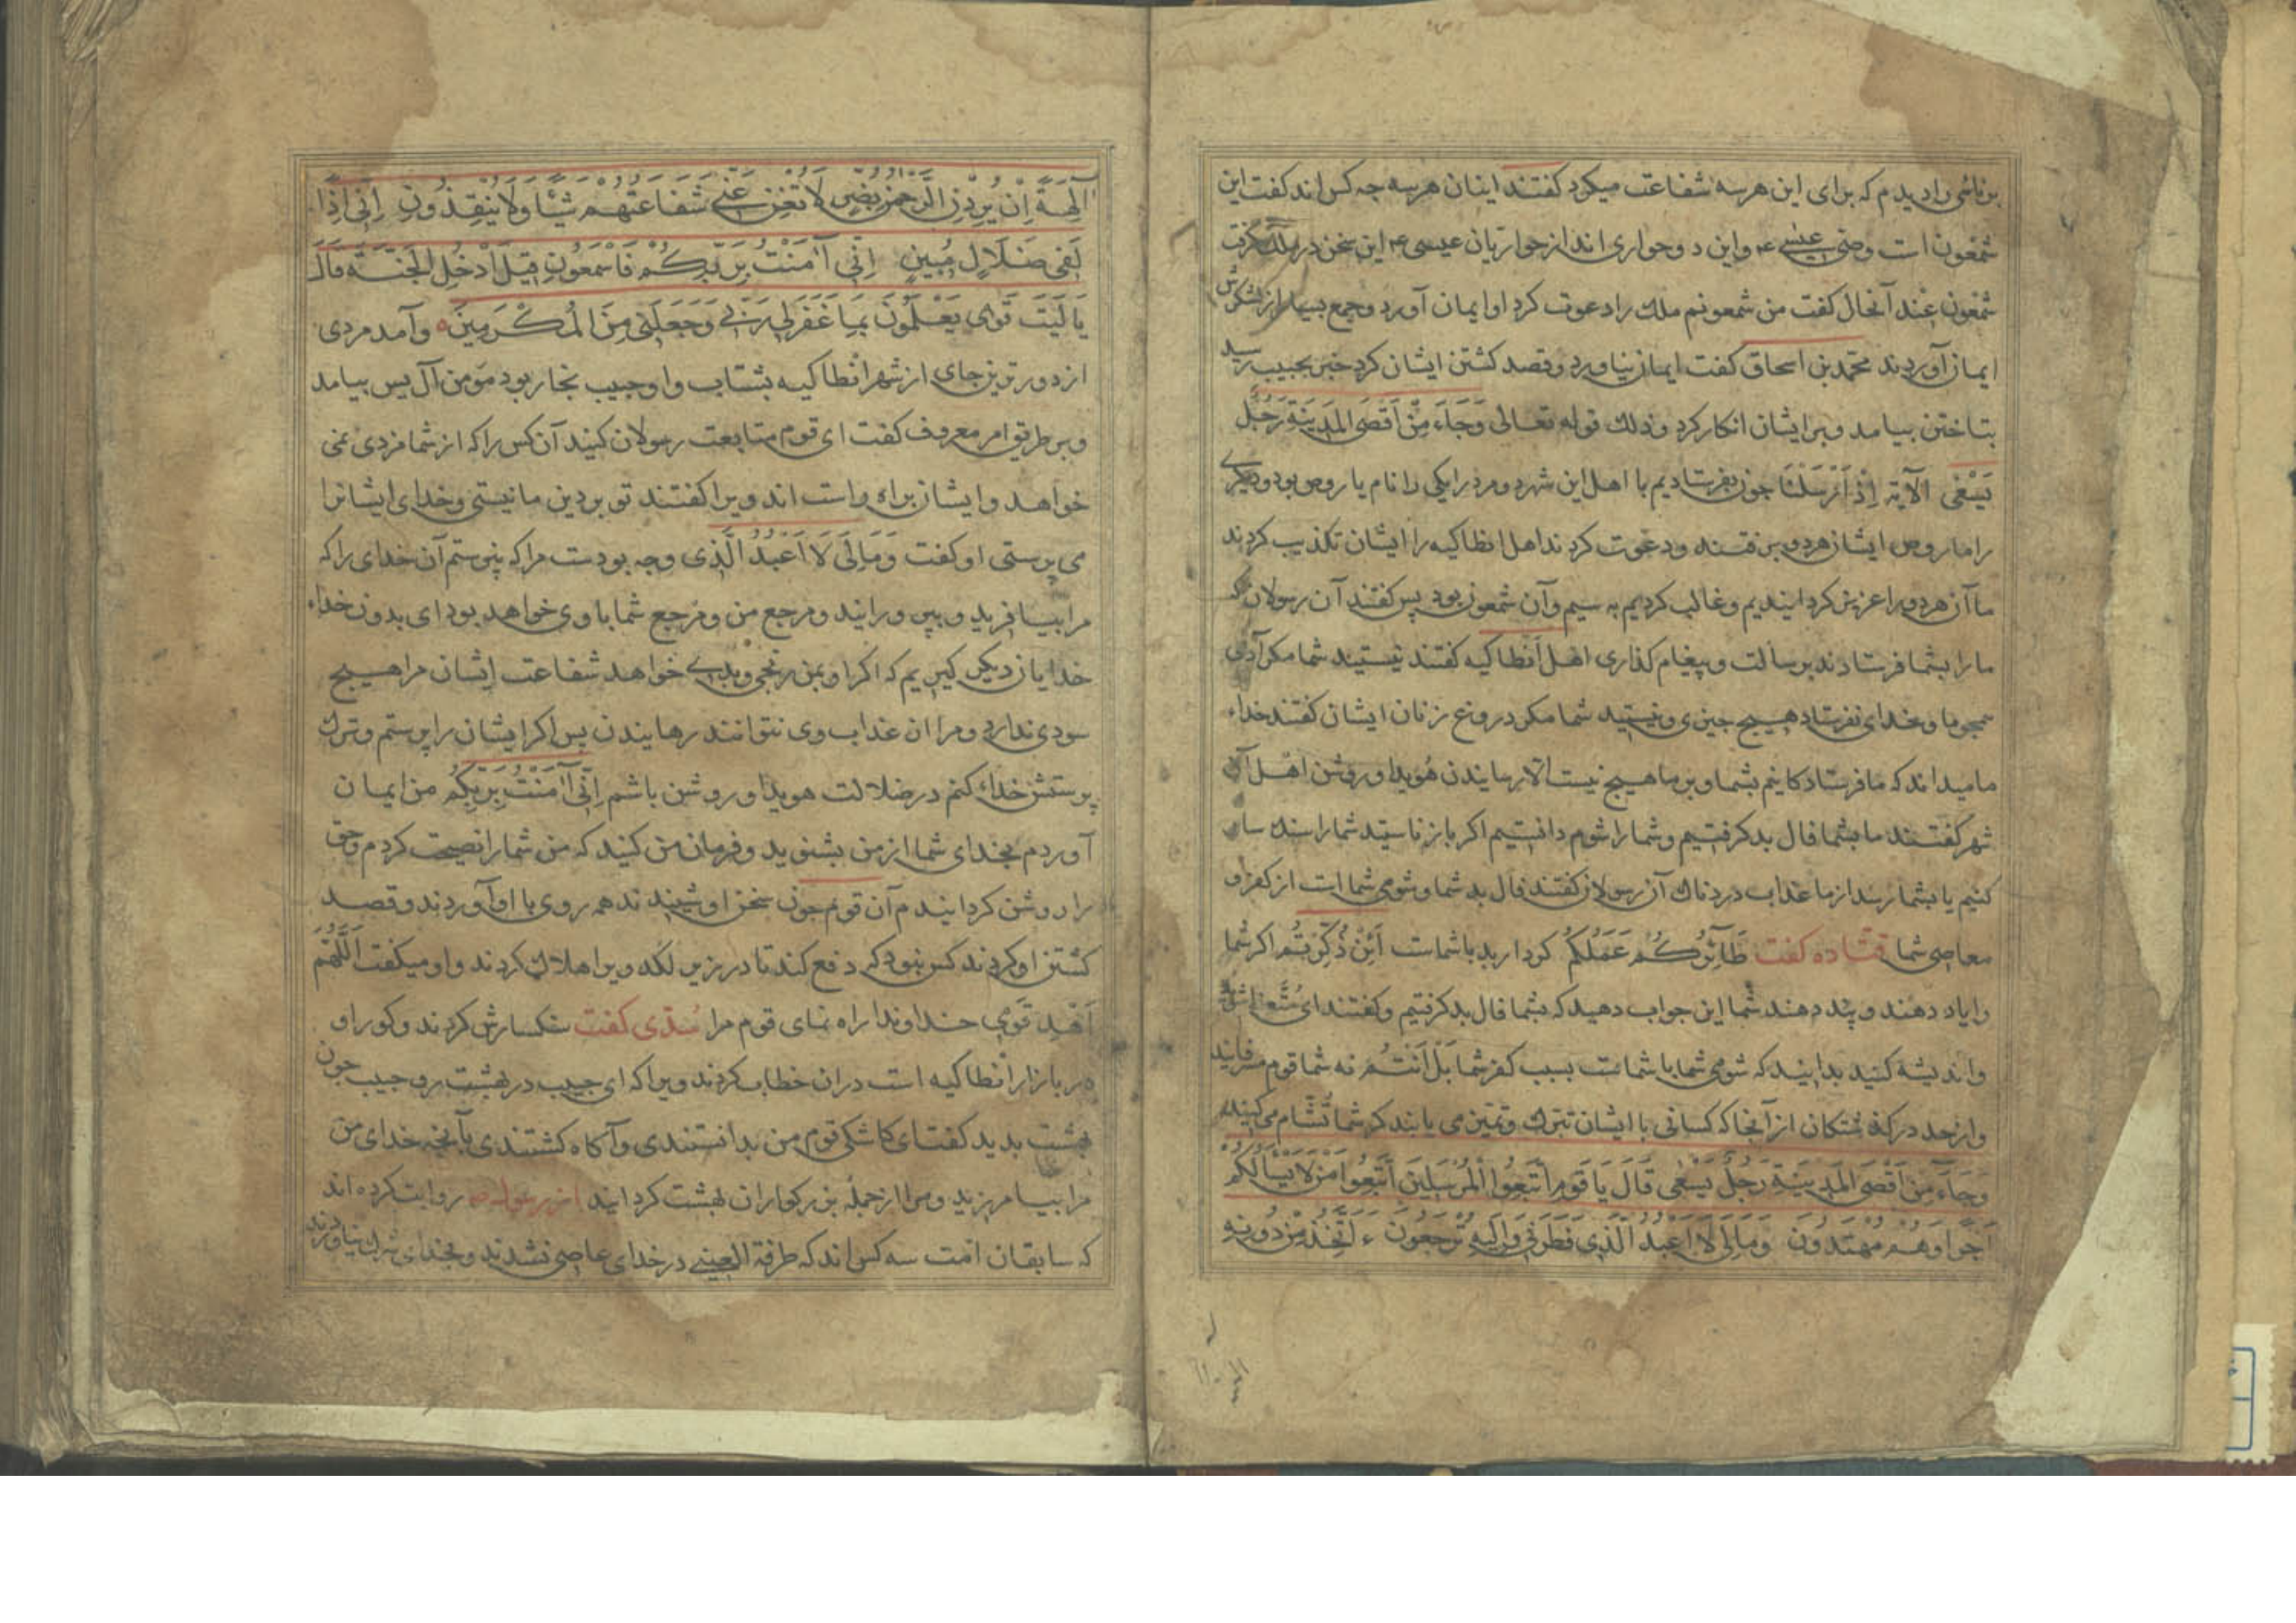 برنائی را دیدم که برای این هرسه شفاعت میکرد کفتند اینان هرسه چه کس اند کفت این
شمعون است وصی عیسی ع واین دو حواری اند از حواریان عیسی ع این سخن در ملک کرفت
شمعون عند آنحال کفت من شمعونم ملک را دعوت کرد او ایمان آورد وجمع بسیار از لشکرش
ایمان آوردند محمد بن اسحاق کفت ایمان نیاورد وقصد کشتن ایشان کرد خبر بحبیب رسید
بتاختن بیامد وبر ایشان انکار کرد وذلک قوله تعالی وَجَاءَ مِنْ اَقْصَی المَدِینَةِ رَجُلٌ
یَسْعَی الآیَة اِذْ اَرْسَلْنَا چون بفرستادیم با اهل این شهر دو مرد را یکی را نام یاروص بود ودیکری
را ماروص ایشان هردو برفتند ودعوت کردند اهل انطاکیه را ایشان تکذیب کردند
ما آن هردو را عزیز کردانیدیم وغالب کردیم به سیم وآن شمعون بود پس کفتند آن رسولان که
ما را بشما فرستادند برسالت وپیغام کذاری اهل انطاکیه کفتند نیستید شما مکر آدمی
همچو ما وخدای نفرستاد هیچ چیزی ونیستید شما مکر دروغ زنان ایشان کفتند خداء
ما میداند که ما فرستادکانیم بشما وبر ما هیچ نیست الا رسانیدن هویدا وروشن اهل آن
شهر کفتند ما بشما فال بد کرفتیم وشما را شوم دانستیم اکر باز ناستید شما را سنک سار
کنیم یا بشما رسد از ما عذاب دردناک آن رسولان کفتند فال بد شما وشومی شما است از کفر و
معاصی شما قتاده کفت طَائِرُكُمْ عَمَلُكُمْ کردار بد باشماست اَئِنْ ذُكِّرْتُمْ اکر شما
را یاد دهند وپند دهند شما این جواب دهید که بشما فال بد کرفتیم وکفتند ای
واندیشه کنید بدانید که شومی شما با شماست بسبب کفر شما بَلْ اَنْتُمْ نه شما قوم مسرفانید
واز حد درکذشتکان از آنجا که کسانی با ایشان تبرک وتیمن می یابند کر شما تشام می کنید
وَجَاءَ مِنْ اَقْصَی المَدِینَةِ رَجُلٌ یَسْعَی قَالَ یَا قَوْمِ اتَّبِعُوا الْمُرْسَلِینَ اتَّبِعُوا مَنْ لَا یَسْأَلُكُمْ
اَجْرًا وَهُمْ مُهْتَدُونَ وَمَالِیَ لَا اَعْبُدُ الَّذِی فَطَرَنِی وَاِلَیْهِ تُرْجَعُونَ ءَاَتَّخِذُ مِنْ دُونِهِ
آلِهَةً اِنْ یُرِدْنِ الرَّحْمَنُ بِضُرٍّ لَا تُغْنِ عَنِّی شَفَاعَتُهُمْ شَیْئًا وَلَا یُنْقِذُونِ اِنِّی اِذًا
لَفِی ضَلَالٍ مُبِینٍ اِنِّی آمَنْتُ بِرَبِّكُمْ فَاسْمَعُونِ قِیلَ ادْخُلِ الْجَنَّةَ قَالَ
یَا لَیْتَ قَوْمِی یَعْلَمُونَ بِمَا غَفَرَ لِی رَبِّی وَجَعَلَنِی مِنَ الْمُكْرَمِینَ ه وآمد مردی
از دورترین جای از شهر انطاکیه بشتاب واو حبیب نجار بود مؤمن آل یس بیامد
وبر طریق امر معروف کفت ای قوم متابعت رسولان کنید آن کس را که از شما مزدی نمی
خواهد وایشان براه راست اند ویرا کفتند تو بر دین ما نیستی وخدای ایشانرا
می پرستی او کفت وَمَالِیَ لَا اَعْبُدُ الَّذِی وچه بودست مرا که نپرستم آن خدای را که
مرا بیافرید وبپرورانید ومرجع من ومرجع شما با وی خواهد بود ای بدون خداء
خدایان دیکر کیریم که اکر او بمن رنجی وبدی خواهد شفاعت ایشان مرا هیچ
سودی ندارد ومرا از عذاب وی نتوانند رهانیدن پس اکر ایشان را پرستم وترک
پرستش خداء کنم در ضلالت هویدا وروشن باشم اِنِّی آمَنْتُ بِرَبِّكُمْ من ایمان
آوردم بخدای شما از من بشنوید وفرمان من کنید که من شما را نصیحت کردم وحق
را روشن کردانیدم آن قوم چون سخن او شنیدند همه روی با او آوردند وقصد
کشتن او کردند کس نبود که دفع کند تا در زیر لکد ویرا هلاک کردند واو میکفت اَللّٰهُمَّ
اهْدِ قَوْمِی خداوندا راه نمای قوم مرا سدّی کفت سنکسارش کردند وکور او
در بازار انطاکیه است دران خطاب کردند ویرا که ای حبیب در بهشت رو حبیب چون
بهشت بدید کفت ای کاشکی قوم من بدانستندی وآکاه کشتندی بآنچه خدای من
مرا بیامرزید ومرا از جملهٔ بزرکواران بهشت کردانید از رسول ص روایت کرده اند
که سابقان امت سه کس اند که طرفة العینی در خدای عاصی نشدند وبخدای شرک نیاوردند